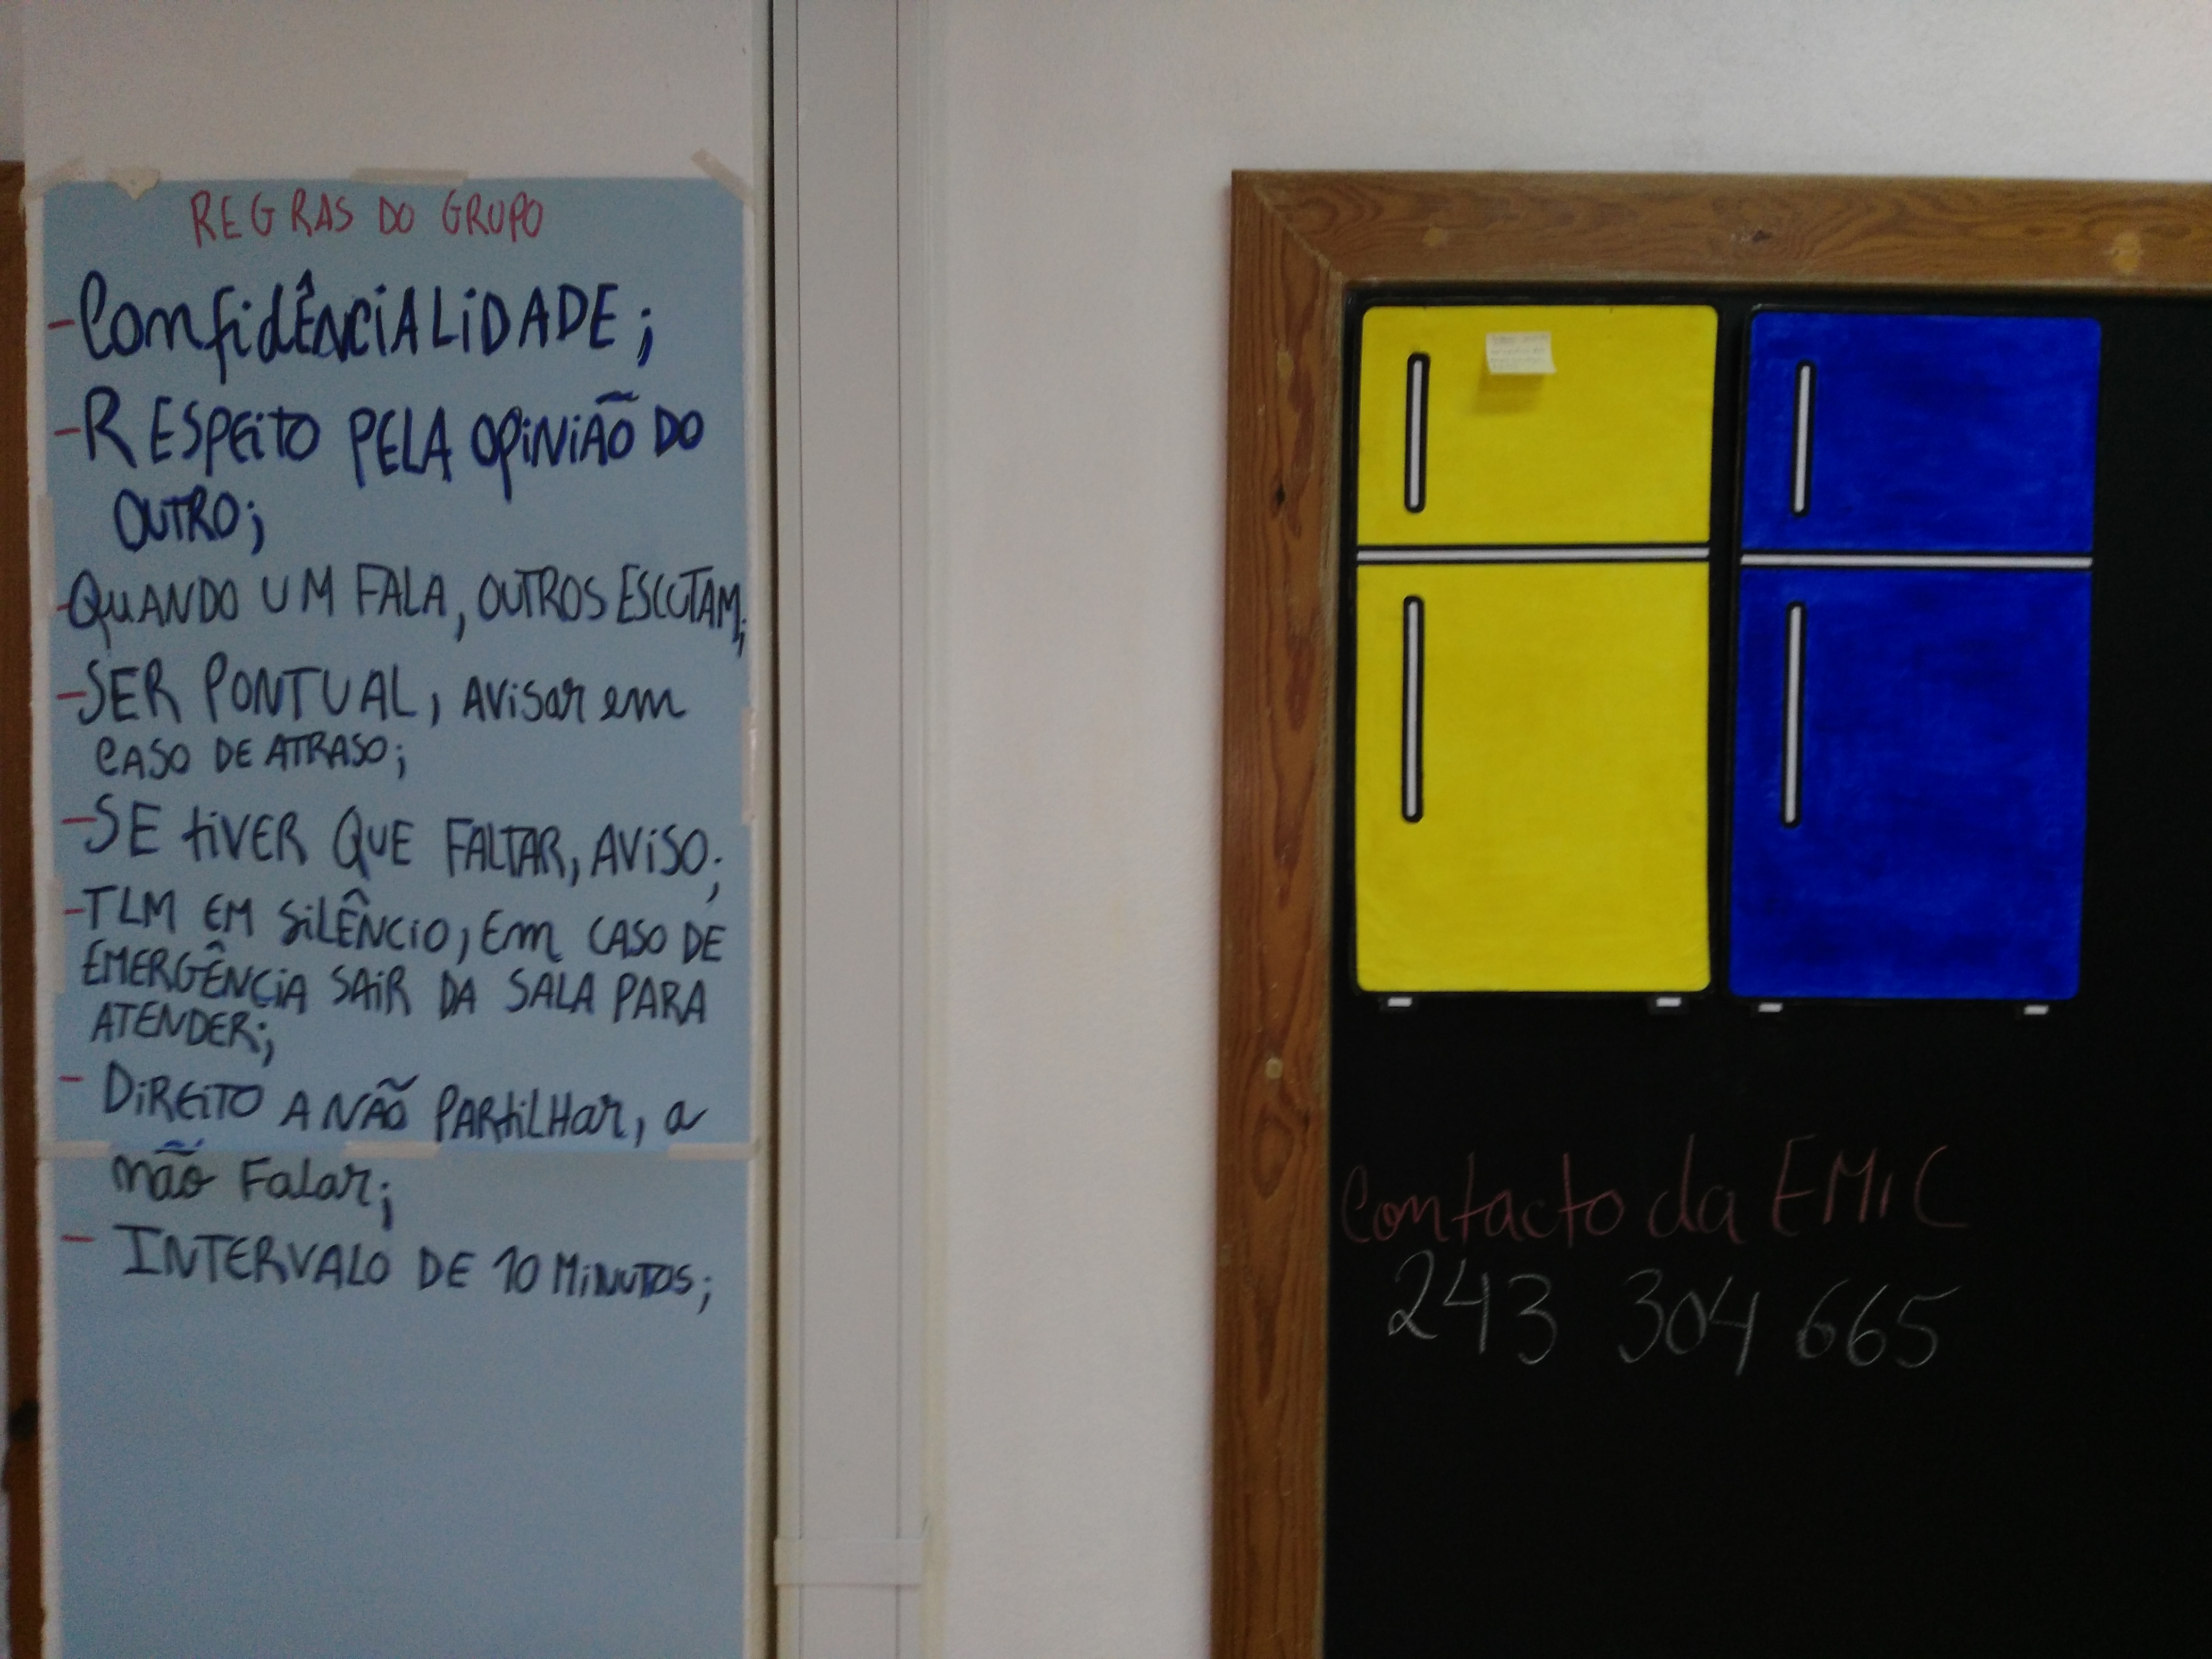 REGRAS DO GRUPO
- CONFIDÊNCIALIDADE;
- RESPEITO PELA OPINIÃO DO
OUTRO;
- QUANDO UM FALA, OUTROS ESCUTAM;
- SER PONTUAL, AVISAR em
CASO DE ATRASO;
- SE tIVER QUE FALTAR, AVISO;
- TLM EM SILÊNCIO, Em CASO DE
EMERGÊNCIA SAIR DA SALA PARA
ATENDER;
- DIREITO A NÃO PARtILHAr, a
não Falar;
- INTERVALO DE 10 MINUTOS;
Contacto da EMIC
243 304 665